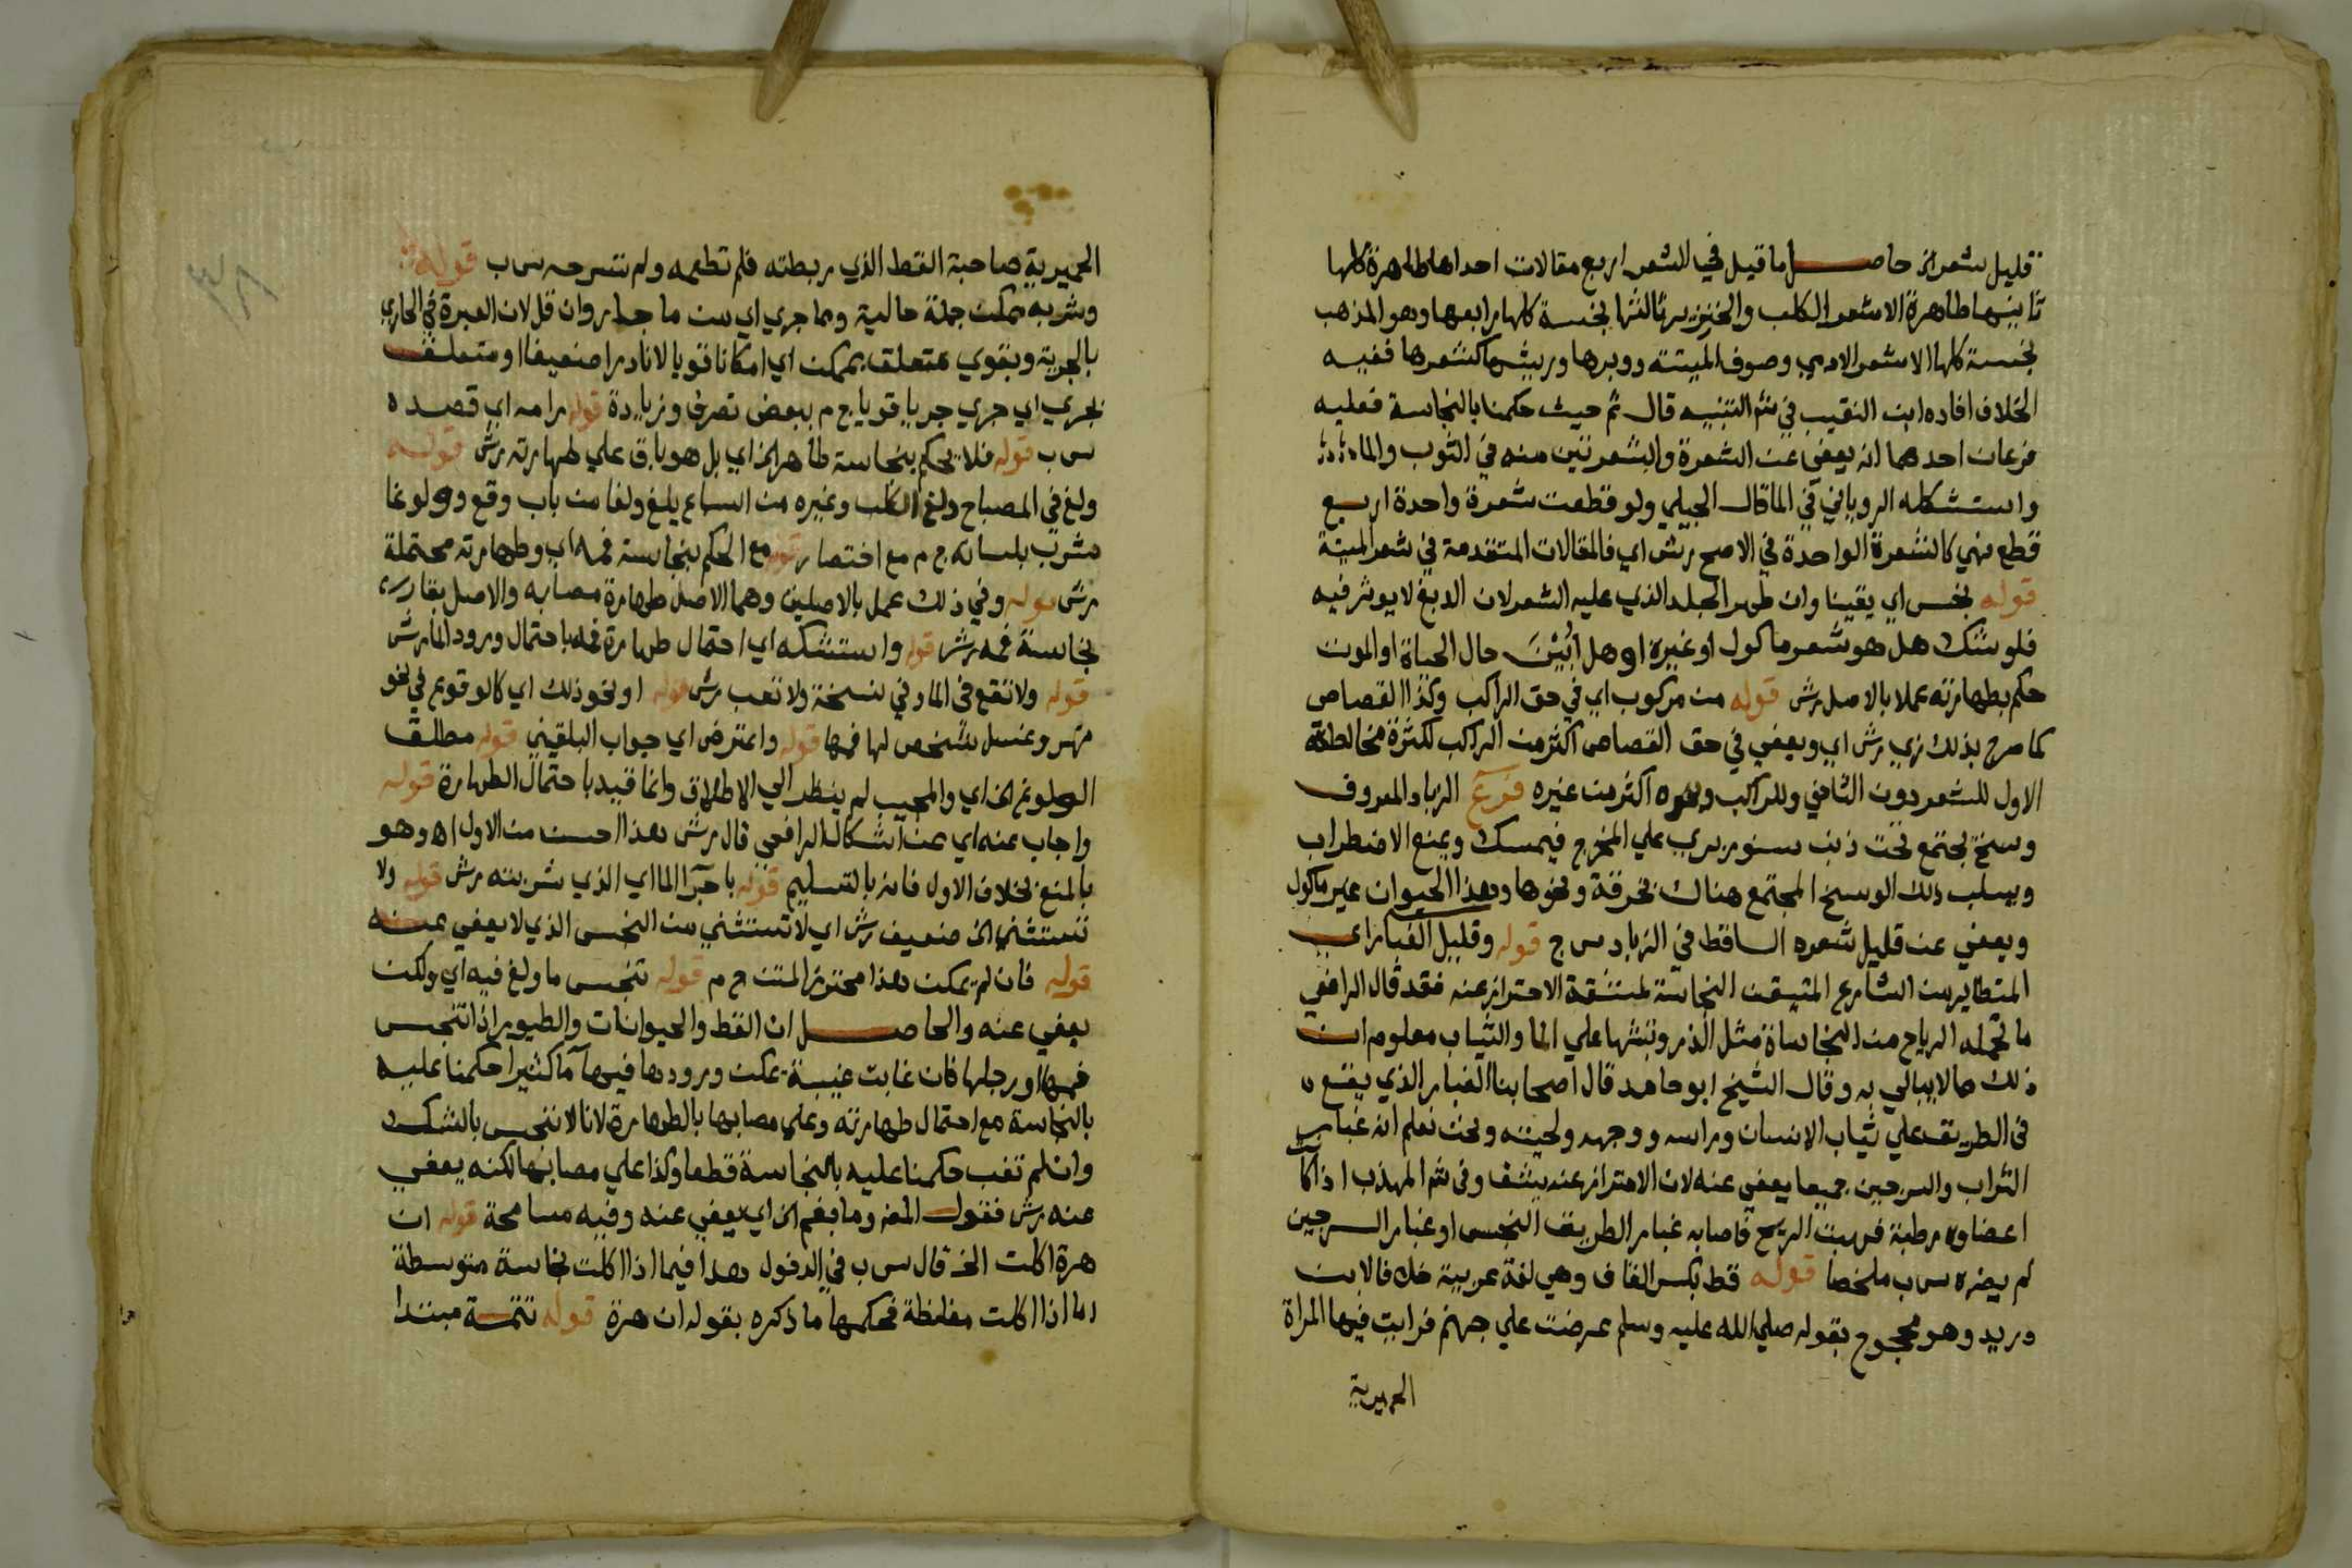 قليل شعر الخ حاصل ما قيل في الشعر اربع مقالات احداها طاهرة كلها
ثانيها طاهرة الا شعر الكلب والخنزير ثالثها نجسة كلها رابعها وهو المذهب
نجسة كلها الا شعر الادمي وصوف الميتة ووبرها وريشها كشعرها ففيه
الخلاف افاده ابن النقيب في شم التنبيه قال ثم حيث حكمنا بالنجاسة فعليه
فرعان احدهما انه يعفي عن الشعرة والشعرتين منه في الثوب والما
واستشكله الروياني في الما قال الجيلي ولو قطعت شعرة واحدة اربع
قطع فهي كالشعرة الواحدة في الاصح رش اي فالمقالات المتقدمة في شعر الميتة
قوله نجس اي يقينا وان طهر الجلد الذي عليه الشعر لان الدبغ لا يوثر فيه
فلو شك هل هو شعر ماكول او غيره او هل ابين حال الحياة او الموت
حكم بطهارته عملا بالاصل رش قوله من مركوب اي في حق الراكب وكذا القصاص
كما صرح بذلك زي رش اي ويعفي في حق القصاص اكثر من الراكب لكثرة مخالطة
الاول للشعر دون الثاني وللراكب ونحوه اكثر من غيره فرع الزباد المعروف
وسخ يجتمع تحت ذنب سنور بري علي المخرج فيمسك ويمنع الاضطراب
ويسلب ذلك الوسخ المجتمع هناك بخرقة ونحوها وهذا الحيوان غير ماكول
ويعفي عن قليل شعره الساقط في الزباد س ج قوله وقليل الغبار اي
المتطاير من الشارع المتيقن النجاسة لمشقة الاحتراز عنه فقد قال الرافعي
ما تحمله الرياح من النجاساة مثل الذر وتبثها علي الما والثياب معلوم ان
ذلك مما لا يبالي به وقال الشيخ ابو حامد قال اصحابنا الغبار الذي يقع
في الطريق علي ثياب الانسان وراسه ووجهه ولحيته ونحن نعلم انه غبار
التراب والسرجين جميعا يعفي عنه لان الاحتراز عنه يشق وفي شم المهذب اذا كا
اعضاوه رطبة فهبت الريح فاصابه غبار الطريق النجس او غبار السرجين
لم يضره س ب ملخصا قوله قط بكسر القاف وهي لغة عربية خلافا لابن
دريد وهو محجوج بقوله صلي الله عليه وسلم عرضت علي جهنم فرايت فيها المراة
الحميرية
الحميرية صاحبة القط الذي ربطته فلم تطعمه ولم تسرحه س ب قوله
وشربه ممكن جملة حالية ومما جري اي من ما جار وان قل لان العبرة في الجاري
بالجرية وبقوي متعلق بممكن اي امكانا قويا لا نادرا ضعيفا او متعلق
بجري اي جري جريا قويا ج م ببعض تصرف وزيادة قوله رامه اي قصده
س ب قوله فلا يحكم بنجاسة طاهر الخ اي بل هو باق علي طهارته رش قوله
ولغ في المصباح ولغ الكلب وغيره من السباع يلغ ولغا من باب وقع وولوغا
شرب بلسانه ج م مع اختصار قوله مع الحكم بنجاسة فمه اي وطهارته محتملة
رش قوله وفي ذلك عمل بالاصلين وهما الاصل طهارة مصابه والاصل بقا
نجاسة فمه رش قوله واستشكله اي احتمال طهارة فمه باحتمال ورود الما رش
قوله ولا تقع في الما وفي نسخة ولا تعب رش قوله او نحو ذلك اي كالوقوع في نحو
نهر وغسل شخص لها فمها قوله واعترض اي جواب البلقيني قوله مطلق
الولوغ الخ اي والمجيب لم ينظر الي الاطلاق وانما قيد باحتمال الطهارة قوله
واجاب عنه اي عن اشكال الرافعي قال رش هذا احسن من الاول اه وهو
بالمنع بخلاف الاول فانه بالتسليم قوله باجزا الما اي الذي شربته رش قوله ولا
تستثني الخ ضعيف رش اي لا تستثني من النجس الذي لا يعفي عنه
قوله فان لم يمكن هذا محترز المتن ح م قوله تنجس ما ولغ فيه اي ولكن
يعفي عنه والحاصل ان القط والحيوانات والطيور اذا تنجس
فمها او رجلها فان غابت غيبة يمكن ورودها فيها ما كثيرا حكمنا عليه
بالنجاسة مع احتمال طهارته وعلي مصابها بالطهارة لانا لا ننجس بالشك
وان لم تغب حكمنا عليه بالنجاسة قطعا وكذا علي مصابها لكنه يعفي
عنه رش فقول المغ وما بفم الخ اي يعفي عنه وفيه مسامحة قوله ان
هرة اكلت الخ قال س ب في الدخول هذا فيما اذا اكلت نجاسة متوسطة
اما اذا اكلت مغلظة فحكمها ما ذكره بقوله ان هرة قوله تتمة مبتدا